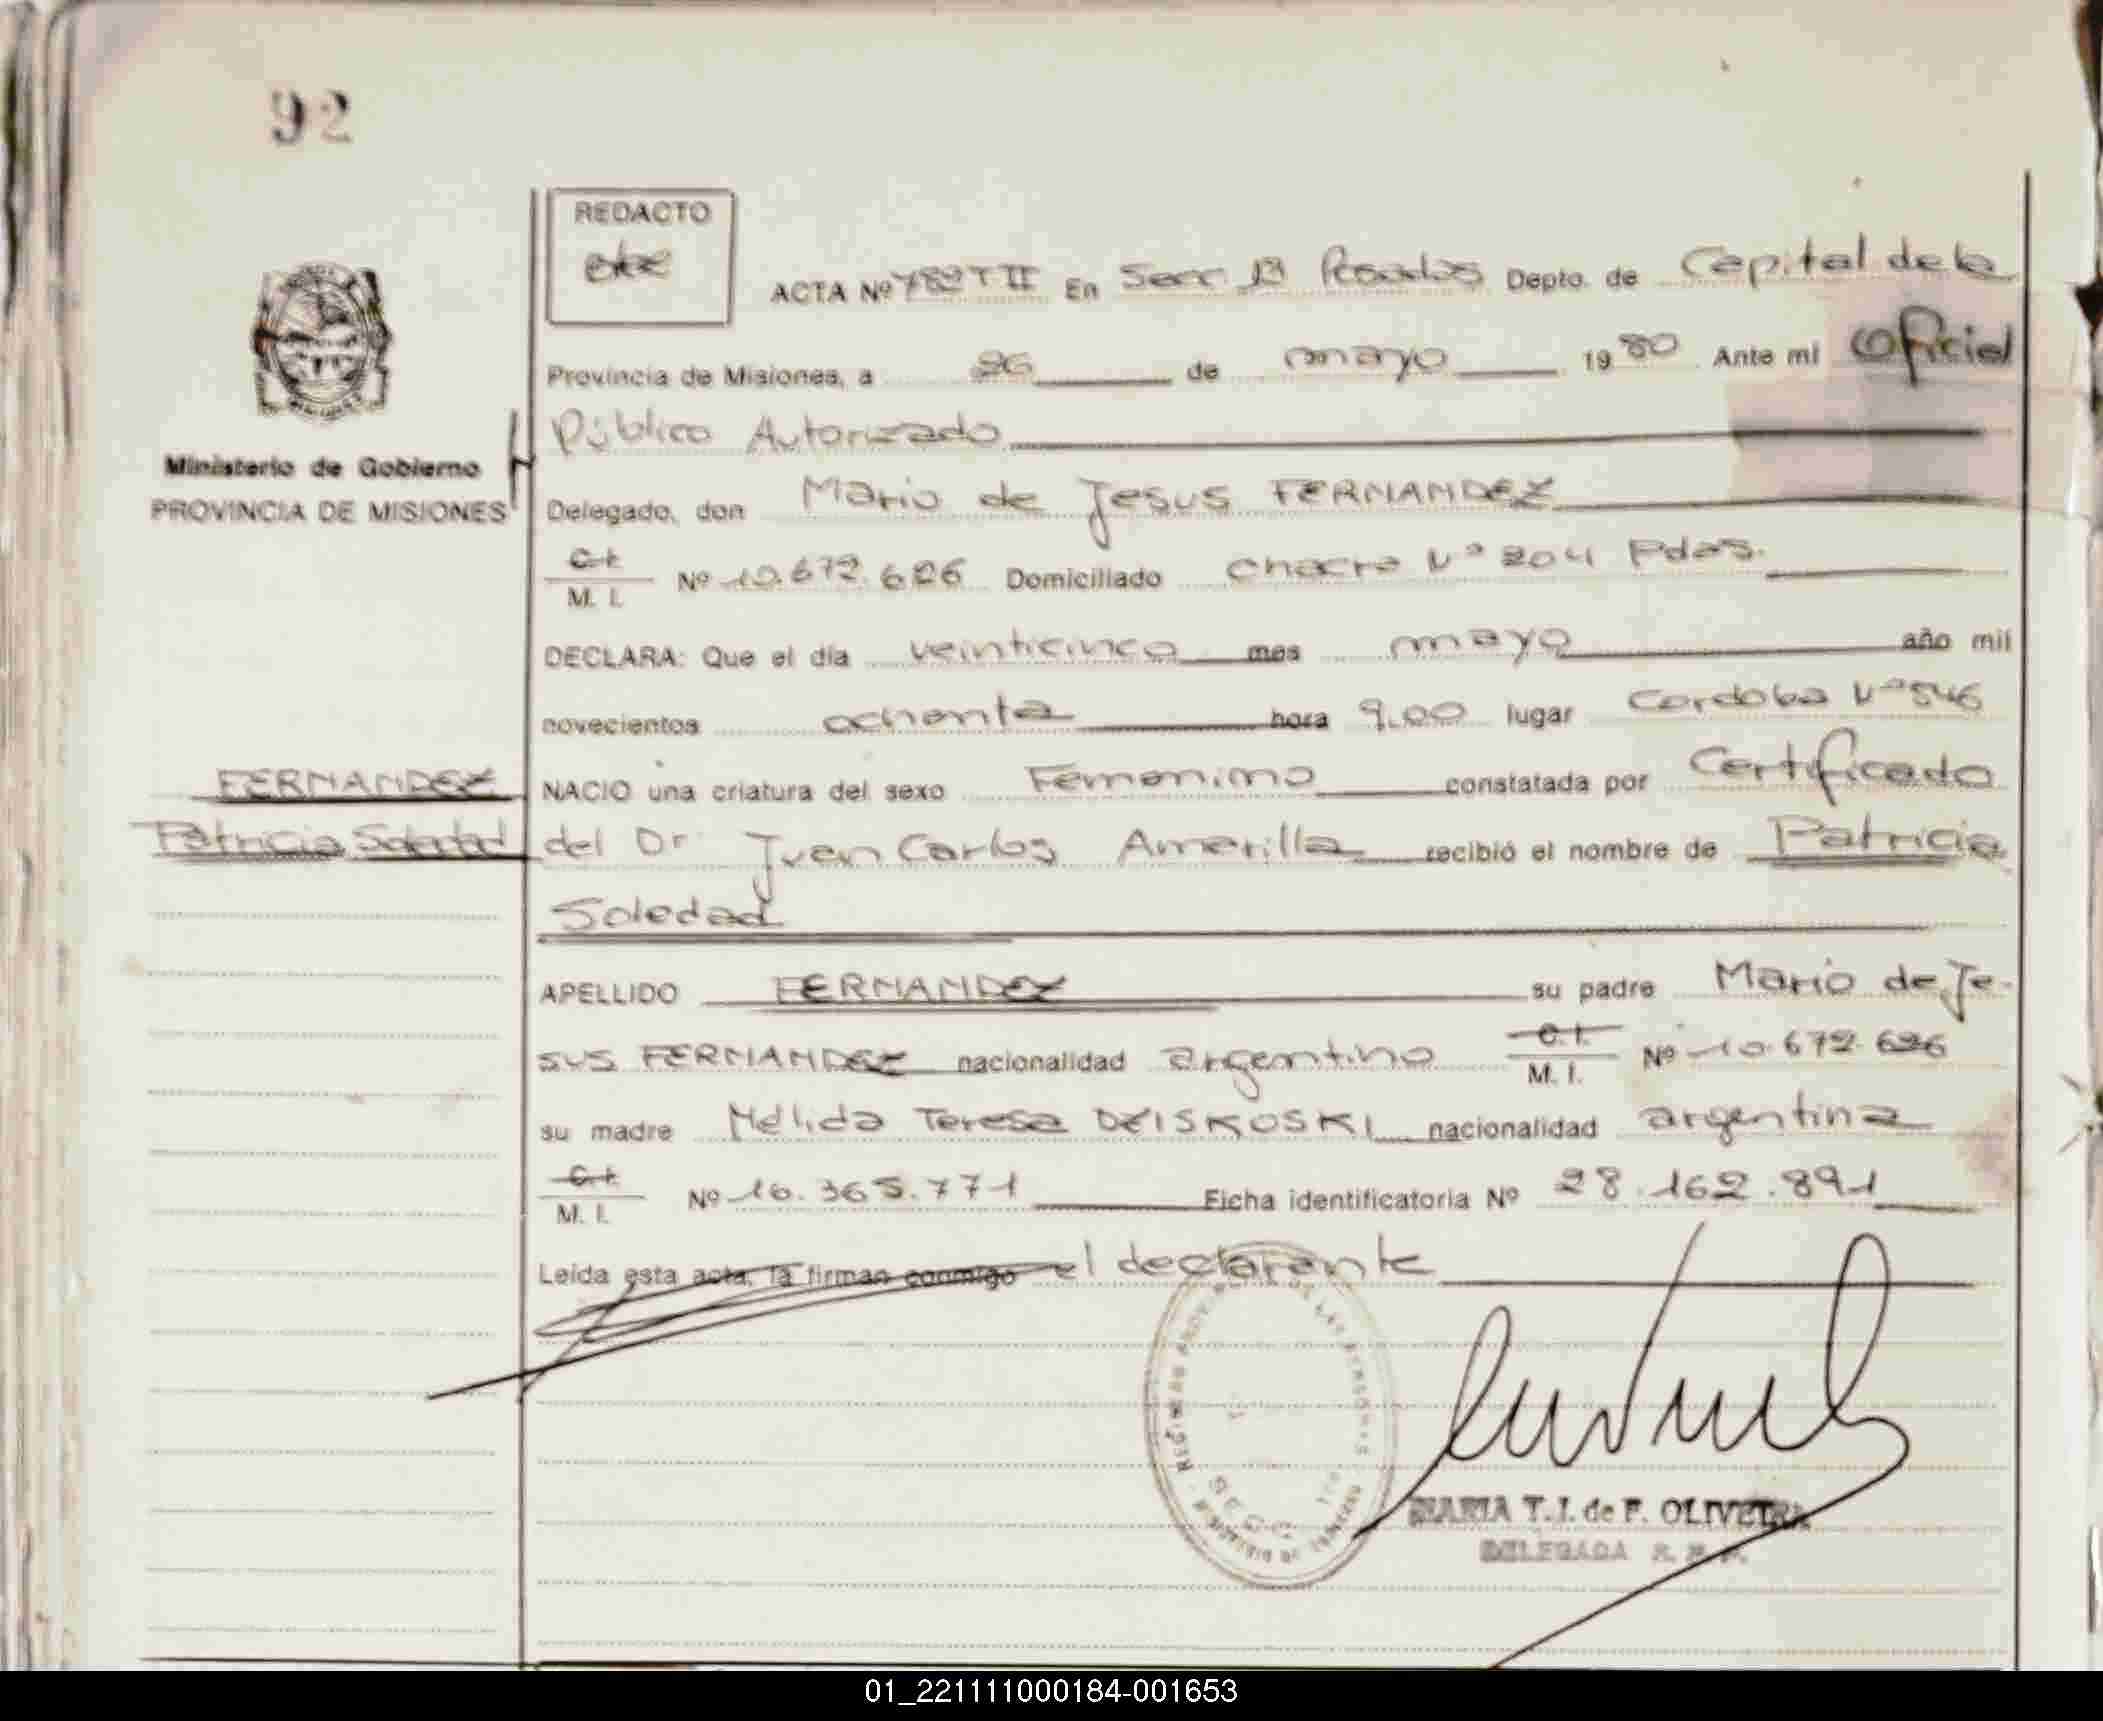 92
REDACTO
ACTA Nº 782 T II En Secc 1ª Posadas Depto. de Capital de la
Provincia de Misiones, a 26 de mayo 1980 Ante mi Oficial
Público Autorizado
Ministerio de Gobierno
PROVINCIA DE MISIONES
Delegado, don Mario de Jesus FERNANDEZ
C.I.
M. I. Nº 10.672.626 Domiciliado Chacra Nº 204 Pdas.
DECLARA: Que el día veinticinco mes mayo año mil
novecientos ochenta hora 9.00 lugar Cordoba Nº 546
FERNANDEZ
Patricia Soledad
NACIO una criatura del sexo Femenino constatada por Certificado
del Dr Juan Carlos Amarilla recibió el nombre de Patricia
Soledad
APELLIDO FERNANDEZ su padre Mario de Je-
sus FERNANDEZ nacionalidad argentino C.I.
M. I. Nº 10.672.626
su madre Nélida Teresa DZISKOSKI nacionalidad argentina
C.I.
M. I. Nº 16.365.771 Ficha identificatoria Nº 28.162.891
Leída esta acta, la firman conmigo el declarante
MARIA T. I. de F. OLIVEIRA
DELEGADA
01_221111000184-001653